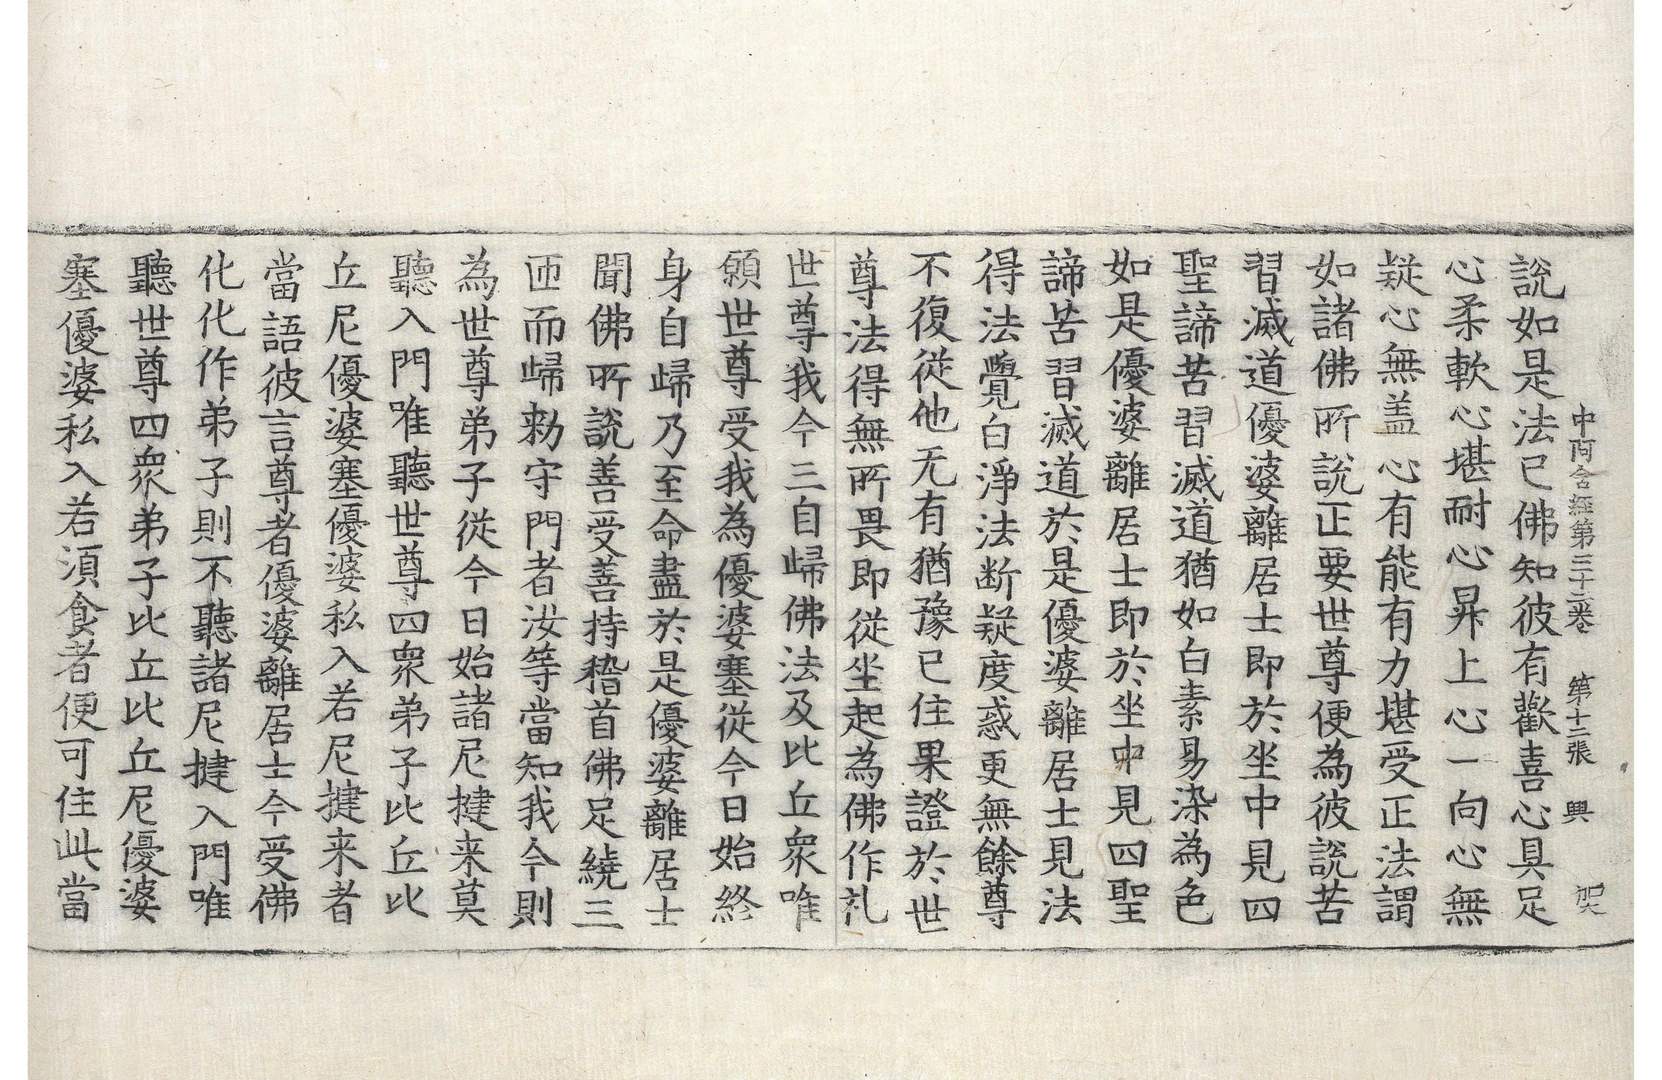 中阿含經第三十二卷 第十二張 興
說如是法已佛知彼有歡喜心具足
心柔軟心堪耐心昇上心一向心無
疑心無盖心有能有力堪受正法謂
如諸佛所說正要世尊便為彼說苦
習滅道優婆離居士即於坐中見四
聖諦苦習滅道猶如白素易染為色
如是優婆離居士即於坐中見四聖
諦苦習滅道於是優婆離居士見法
得法覺白淨法断疑度惑更無餘尊
不復從他无有猶豫已住果證於世
尊法得無所畏即從坐起為佛作礼
世尊我今三自歸佛法及比丘衆唯
願世尊受我為優婆塞從今日始終
身自歸乃至命盡於是優婆離居士
聞佛所說善受善持稽首佛足繞三
匝而歸勑守門者汝等當知我今則
為世尊弟子從今日始諸尼揵来莫
聽入門唯聽世尊四衆弟子比丘比
丘尼優婆塞優婆私入若尼揵来者
當語彼言尊者優婆離居士今受佛
化化作弟子則不聽諸尼揵入門唯
聽世尊四衆弟子比丘比丘尼優婆
塞優婆私入若須食者便可住此當